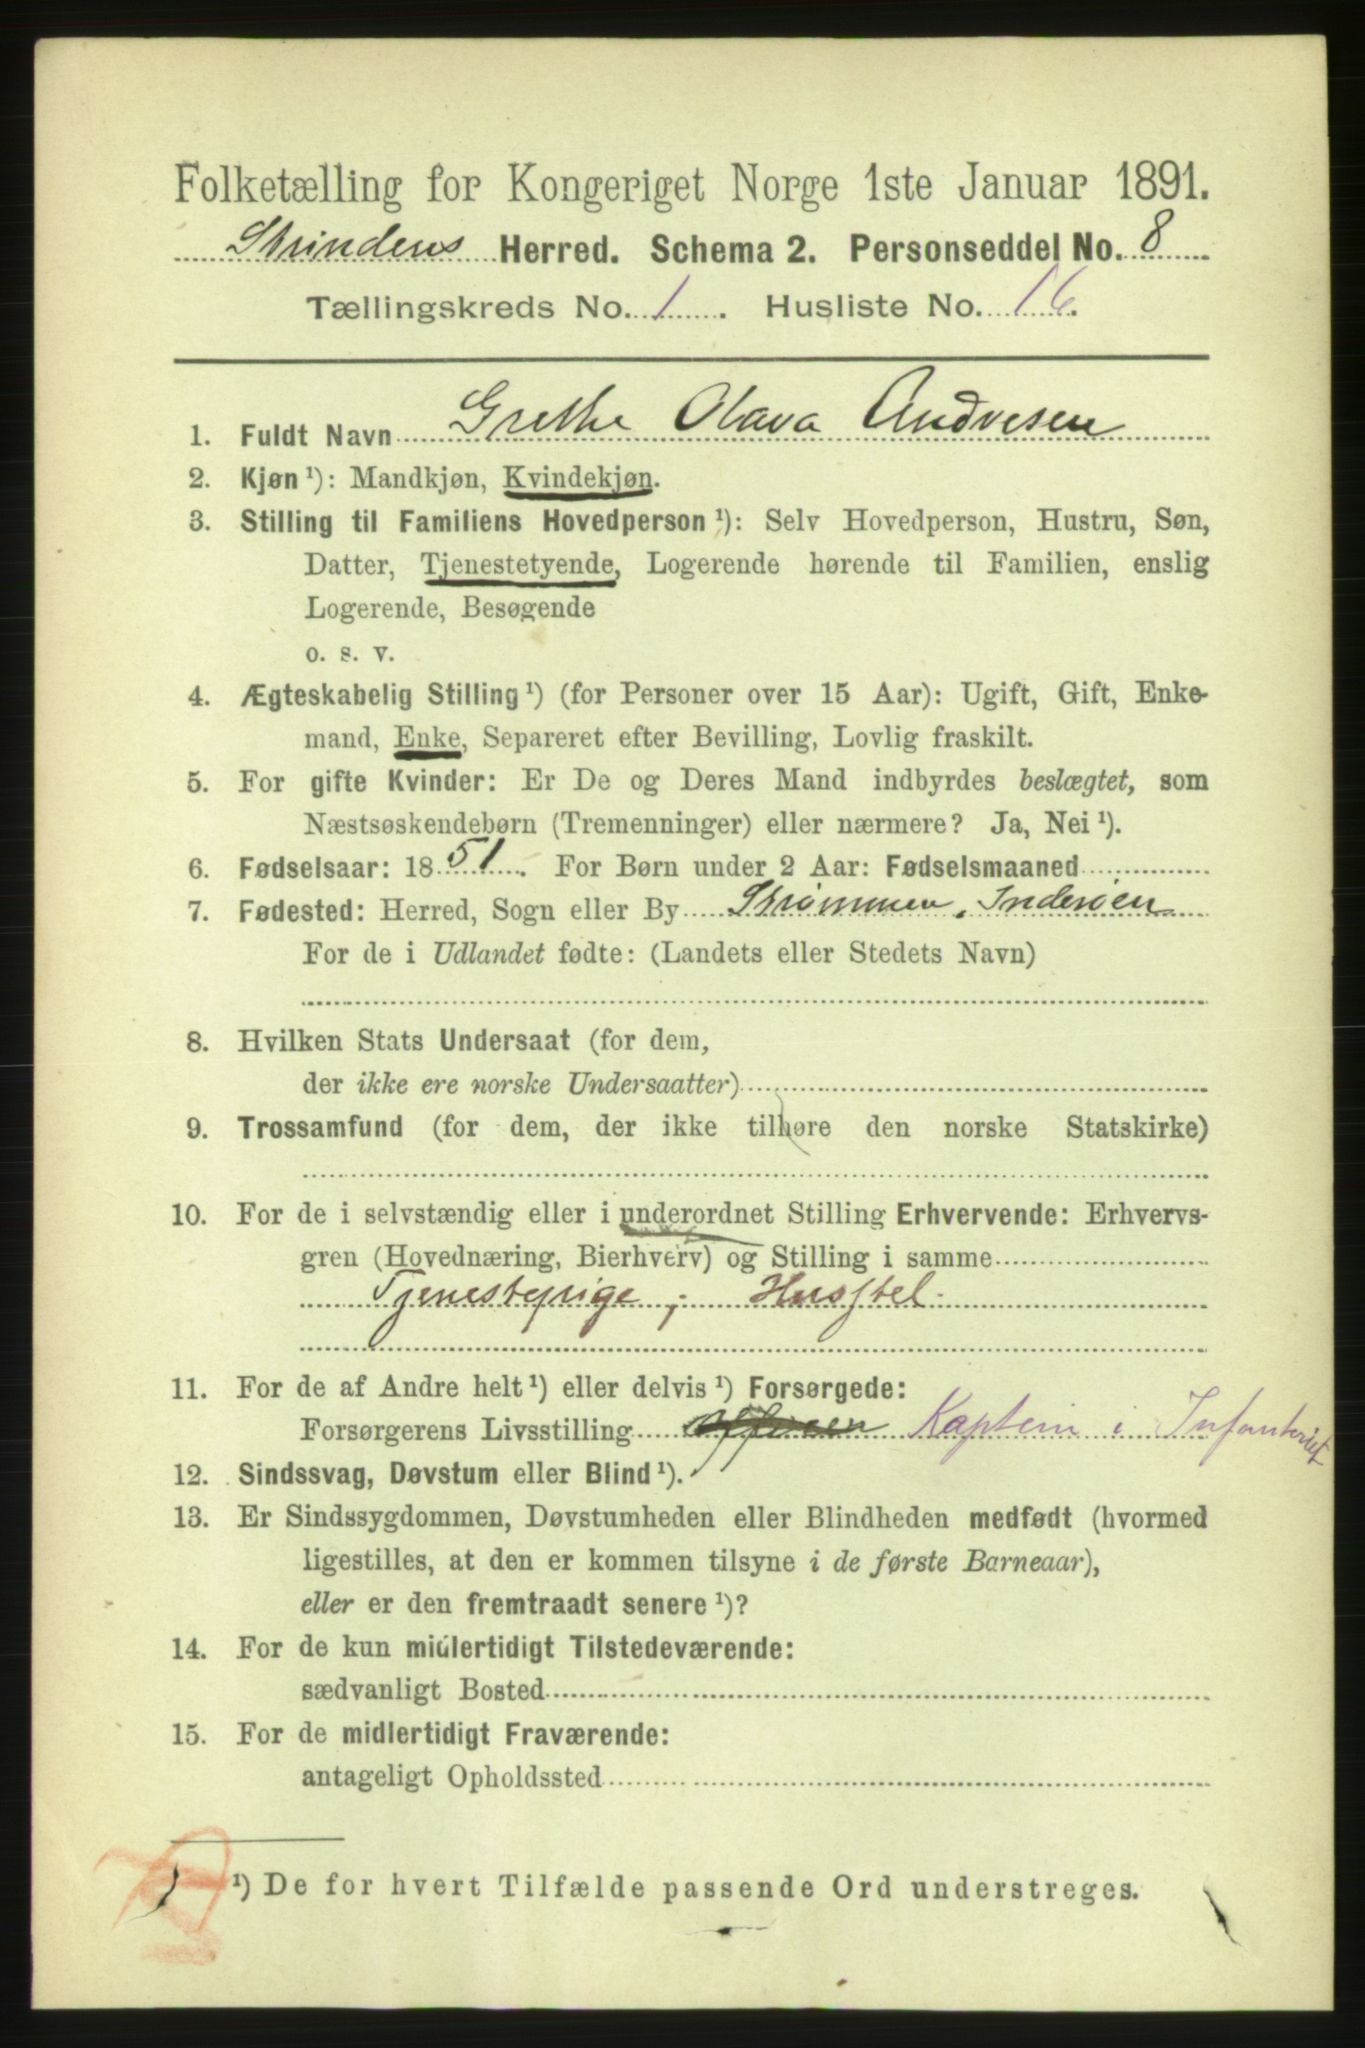 Folketælling for Kongeriget Norge 1ste Januar 1891.
Strindens Herred. Schema 2. Personseddel No. 8
Tællingskreds No. 1. Husliste No. 16.
1. Fuldt Navn Grethe Olava Andresen
2. Kjøn ¹): Mandkjøn, Kvindekjøn.
3. Stilling til Familiens Hovedperson ¹): Selv Hovedperson, Hustru, Søn,
Datter, Tjenestetyende, Logerende hørende til Familien, enslig
Logerende, Besøgende
o. s. v.
4. Ægteskabelig Stilling ¹) (for Personer over 15 Aar): Ugift, Gift, Enke-
mand, Enke, Separeret efter Bevilling, Lovlig fraskilt.
5. For gifte Kvinder: Er De og Deres Mand indbyrdes beslægtet, som
Næstsøskendebørn (Tremenninger) eller nærmere? Ja, Nei ¹).
6. Fødselsaar: 1851. For Børn under 2 Aar: Fødselsmaaned
7. Fødested: Herred, Sogn eller By Strømmen, Inderøen
For de i Udlandet fødte: (Landets eller Stedets Navn)
8. Hvilken Stats Undersaat (for dem,
der ikke ere norske Undersaatter)
9. Trossamfund (for dem, der ikke tilhøre den norske Statskirke)
10. For de i selvstændig eller i underordnet Stilling Erhvervende: Erhvervs-
gren (Hovednæring, Bierhverv) og Stilling i samme
Tjenestepige; Husstel.
11. For de af Andre helt ¹) eller delvis ¹) Forsørgede:
Forsørgerens Livsstilling Kaptein i Infanteriet
12. Sindssvag, Døvstum eller Blind ¹).
13. Er Sindssygdommen, Døvstumheden eller Blindheden medfødt (hvormed
ligestilles, at den er kommen tilsyne i de første Barneaar),
eller er den fremtraadt senere ¹)?
14. For de kun midlertidigt Tilstedeværende:
sædvanligt Bosted
15. For de midlertidigt Fraværende:
antageligt Opholdssted
¹) De for hvert Tilfælde passende Ord understreges.